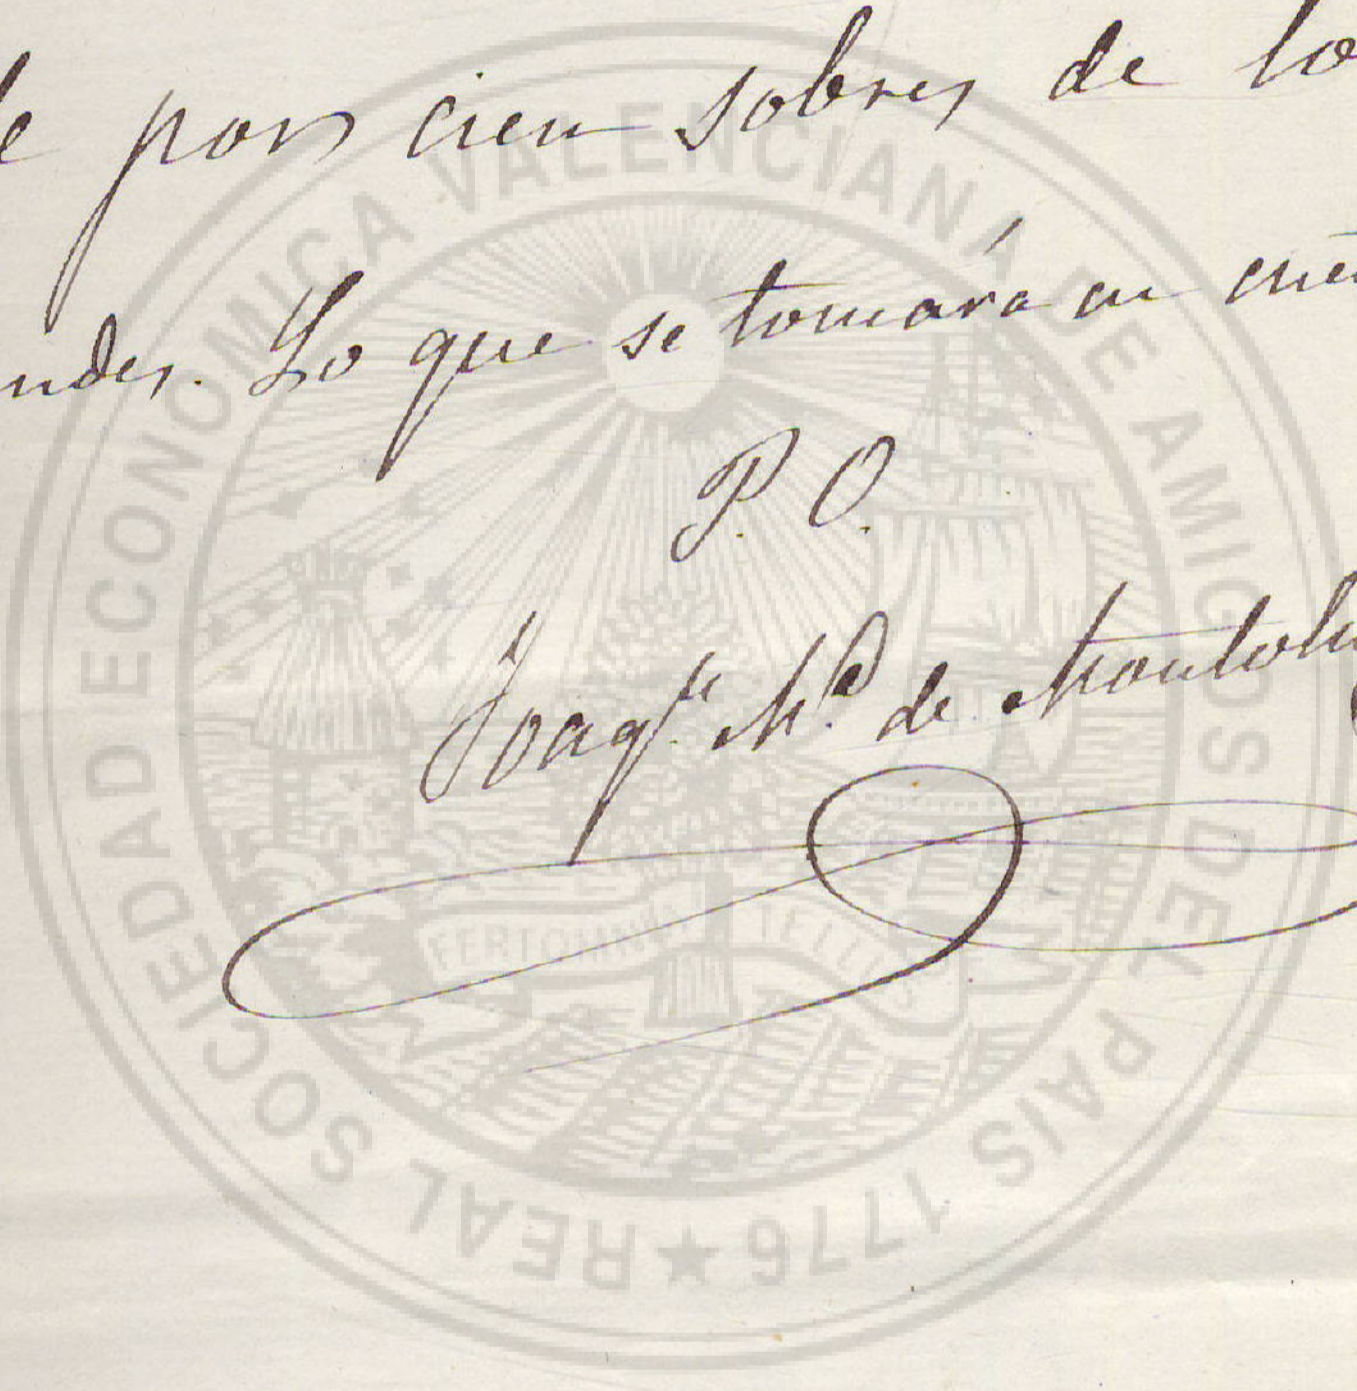 le por cien sobres de lo
ndes. Lo que se tomará en cue
P. O.
Joaqⁿ. Mª. de Montoliu
REAL SOCIEDAD ECONOMICA VALENCIANA DE AMIGOS DEL PAIS 1776